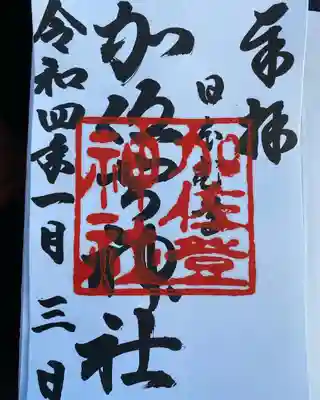 奉拝
加佐登神社
令和四年一月三日
加佐登
神社